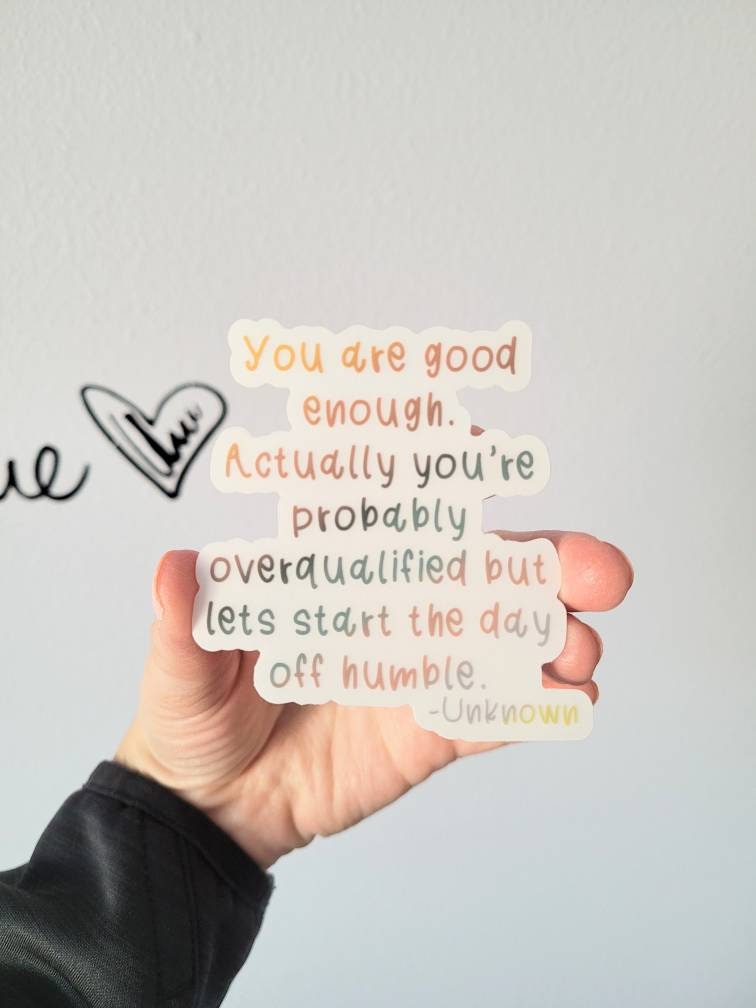 You are good
enough.
Actually you're
probably
overqualified but
lets start the day
off humble.
-Unknown
ue